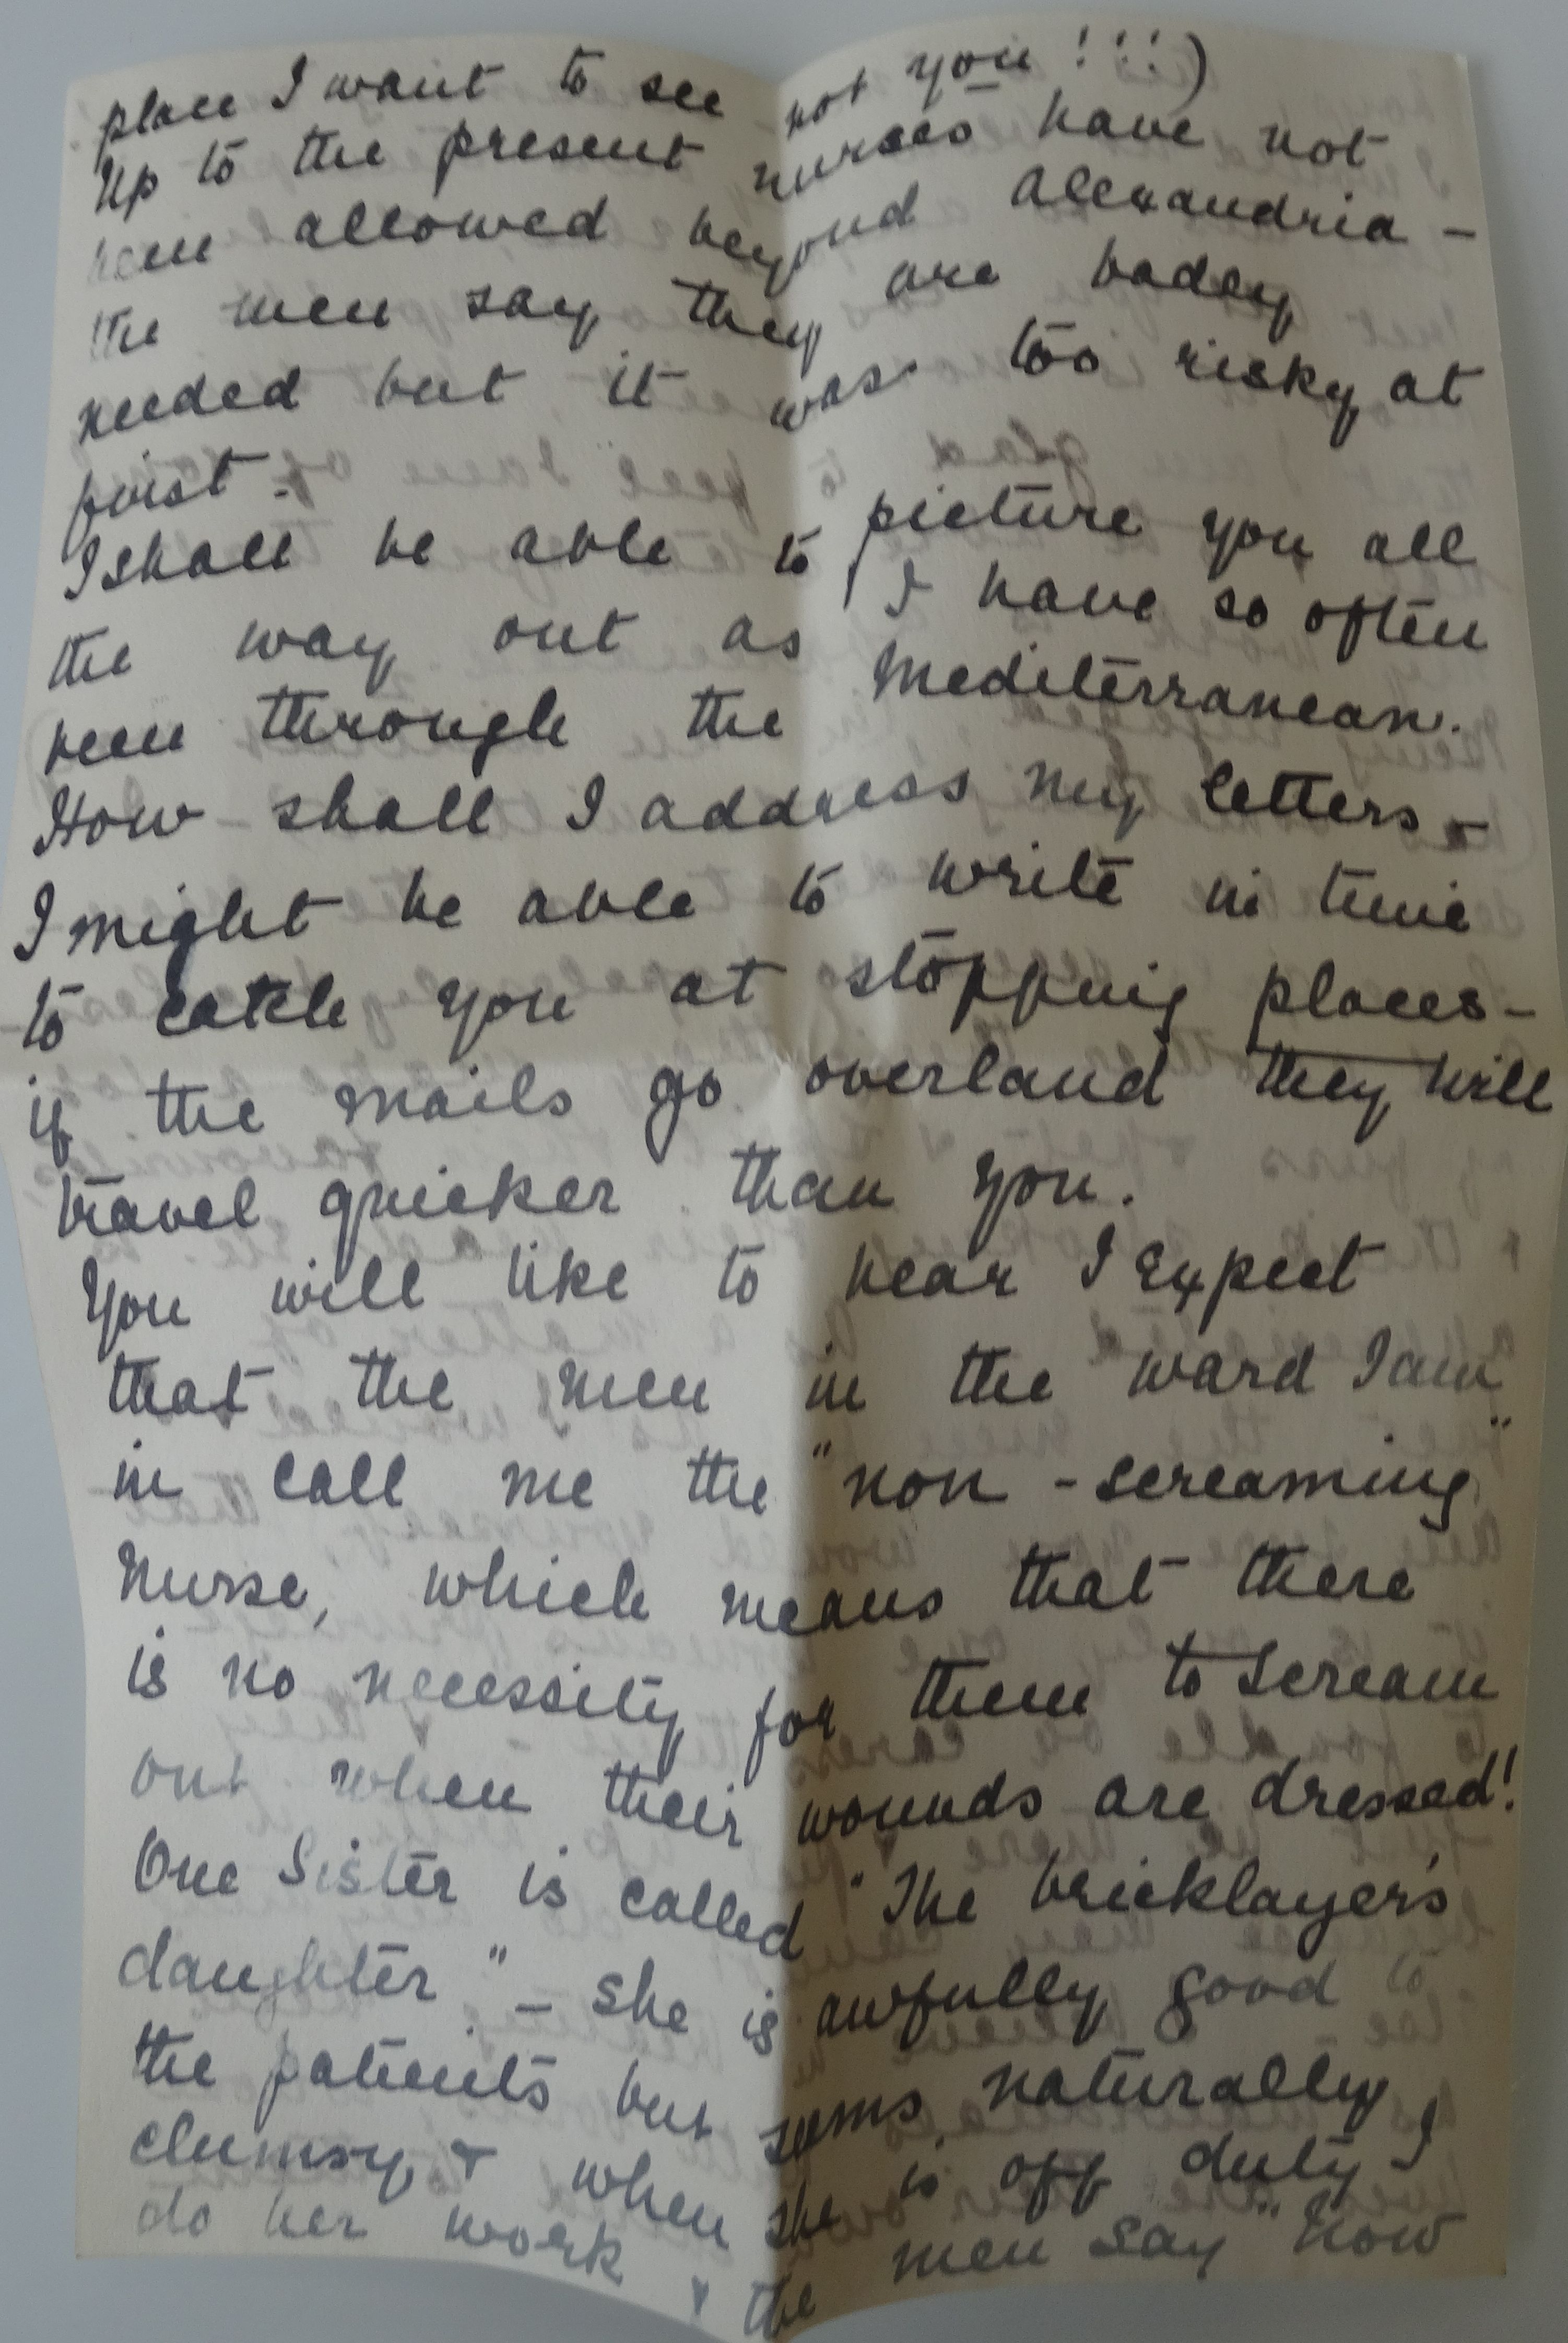 place I want to see - not you!!!)
Up to the present nurses have not
been allowed beyond Alexandria -
the men say they are badly
needed but it was too risky at
first -
I shall be able to picture you all
the way out as I have so often
been through the Mediterranean.
How shall I address my letters -
I might be able to write in time
to catch you at stopping places -
if the mails go overland they will
travel quicker than you.
You will like to hear I expect
that the men in the ward I am
in call me the "non-screaming"
Nurse, which means that there
is no necessity for them to scream
out when their wounds are dressed!
One Sister is called "The bricklayer's
daughter" - she is awfully good to
the patients but seems naturally
clumsy & when she is off duty I
do her work & the men say "Now